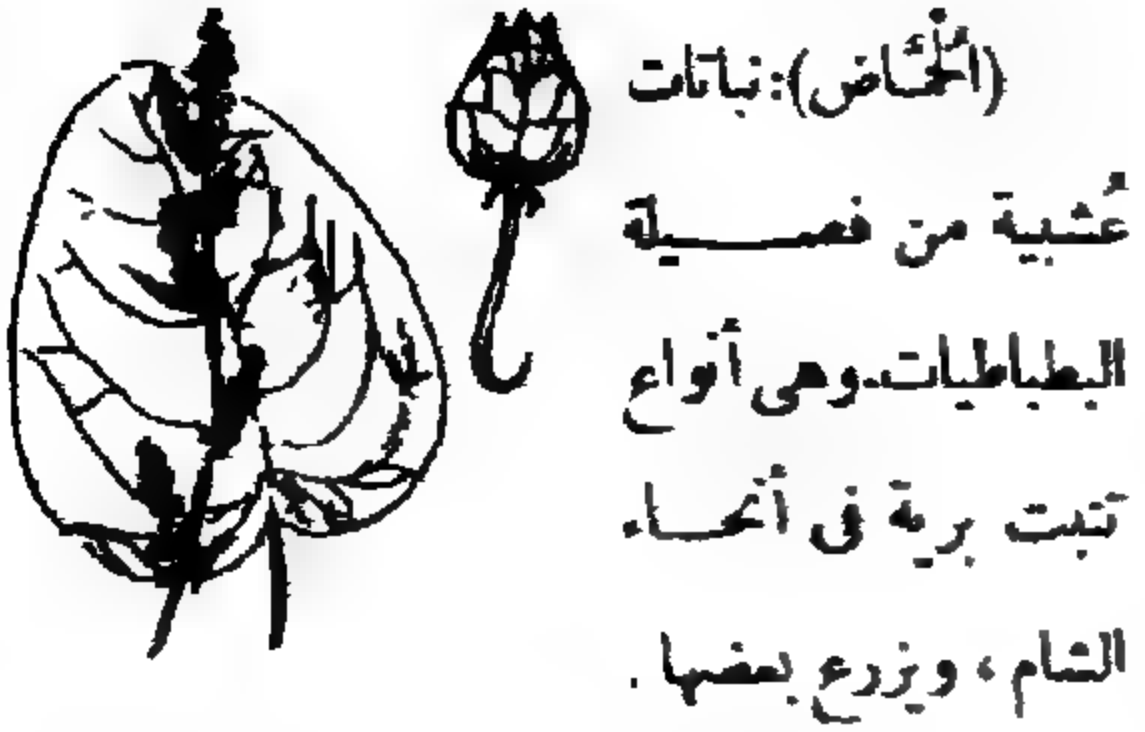 (الْحُمَّاض): نباتات
عُشبية من فصيلة
البطباطيات. وهى أنواع
تنبت برية فى أنحاء
الشام ، ويزرع بعضها .